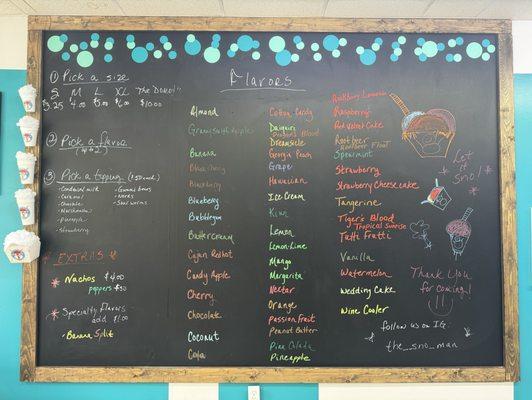 ① Pick a size
S M L XL The Dono!!
3.25 4.00 5.00 6.00 $10.00
② Pick a flavor
③ Pick a topping
- Condensed milk
- Caramel
- Chocolate
- Marshmallow
- Pineapple
- Strawberry
- Gummy bears
- Nerds
- Sour worms
EXTRAS
* Nachos $4.00
peppers $.50
* Specialty Flavors
add $1.00
- Banana Split
Flavors
Almond
Granny Smith Apple
Banana
Black Cherry
Blackberry
Blueberry
Bubblegum
Buttercream
Cajun Redhot
Candy Apple
Cherry
Chocolate
Coconut
Cola
Cotton Candy
Daiquiri
Dragons Blood
Dreamsicle
Georgia Peach
Grape
Hawaiian
Ice Cream
Kiwi
Lemon
Lemon-Lime
Mango
Margarita
Nectar
Orange
Passion Fruit
Peanut Butter
Pina Colada
Pineapple
Raspberry Lemonade
Raspberry
Red Velvet Cake
Root beer
Root beer Float
Spearmint
Strawberry
Strawberry Cheesecake
Tangerine
Tiger's Blood
Tropical Sunrise
Tutti Frutti
Vanilla
Watermelon
Wedding Cake
Wine Cooler
Let it
Sno!
Thank You
for coming!
follow us on IG
the_sno_man